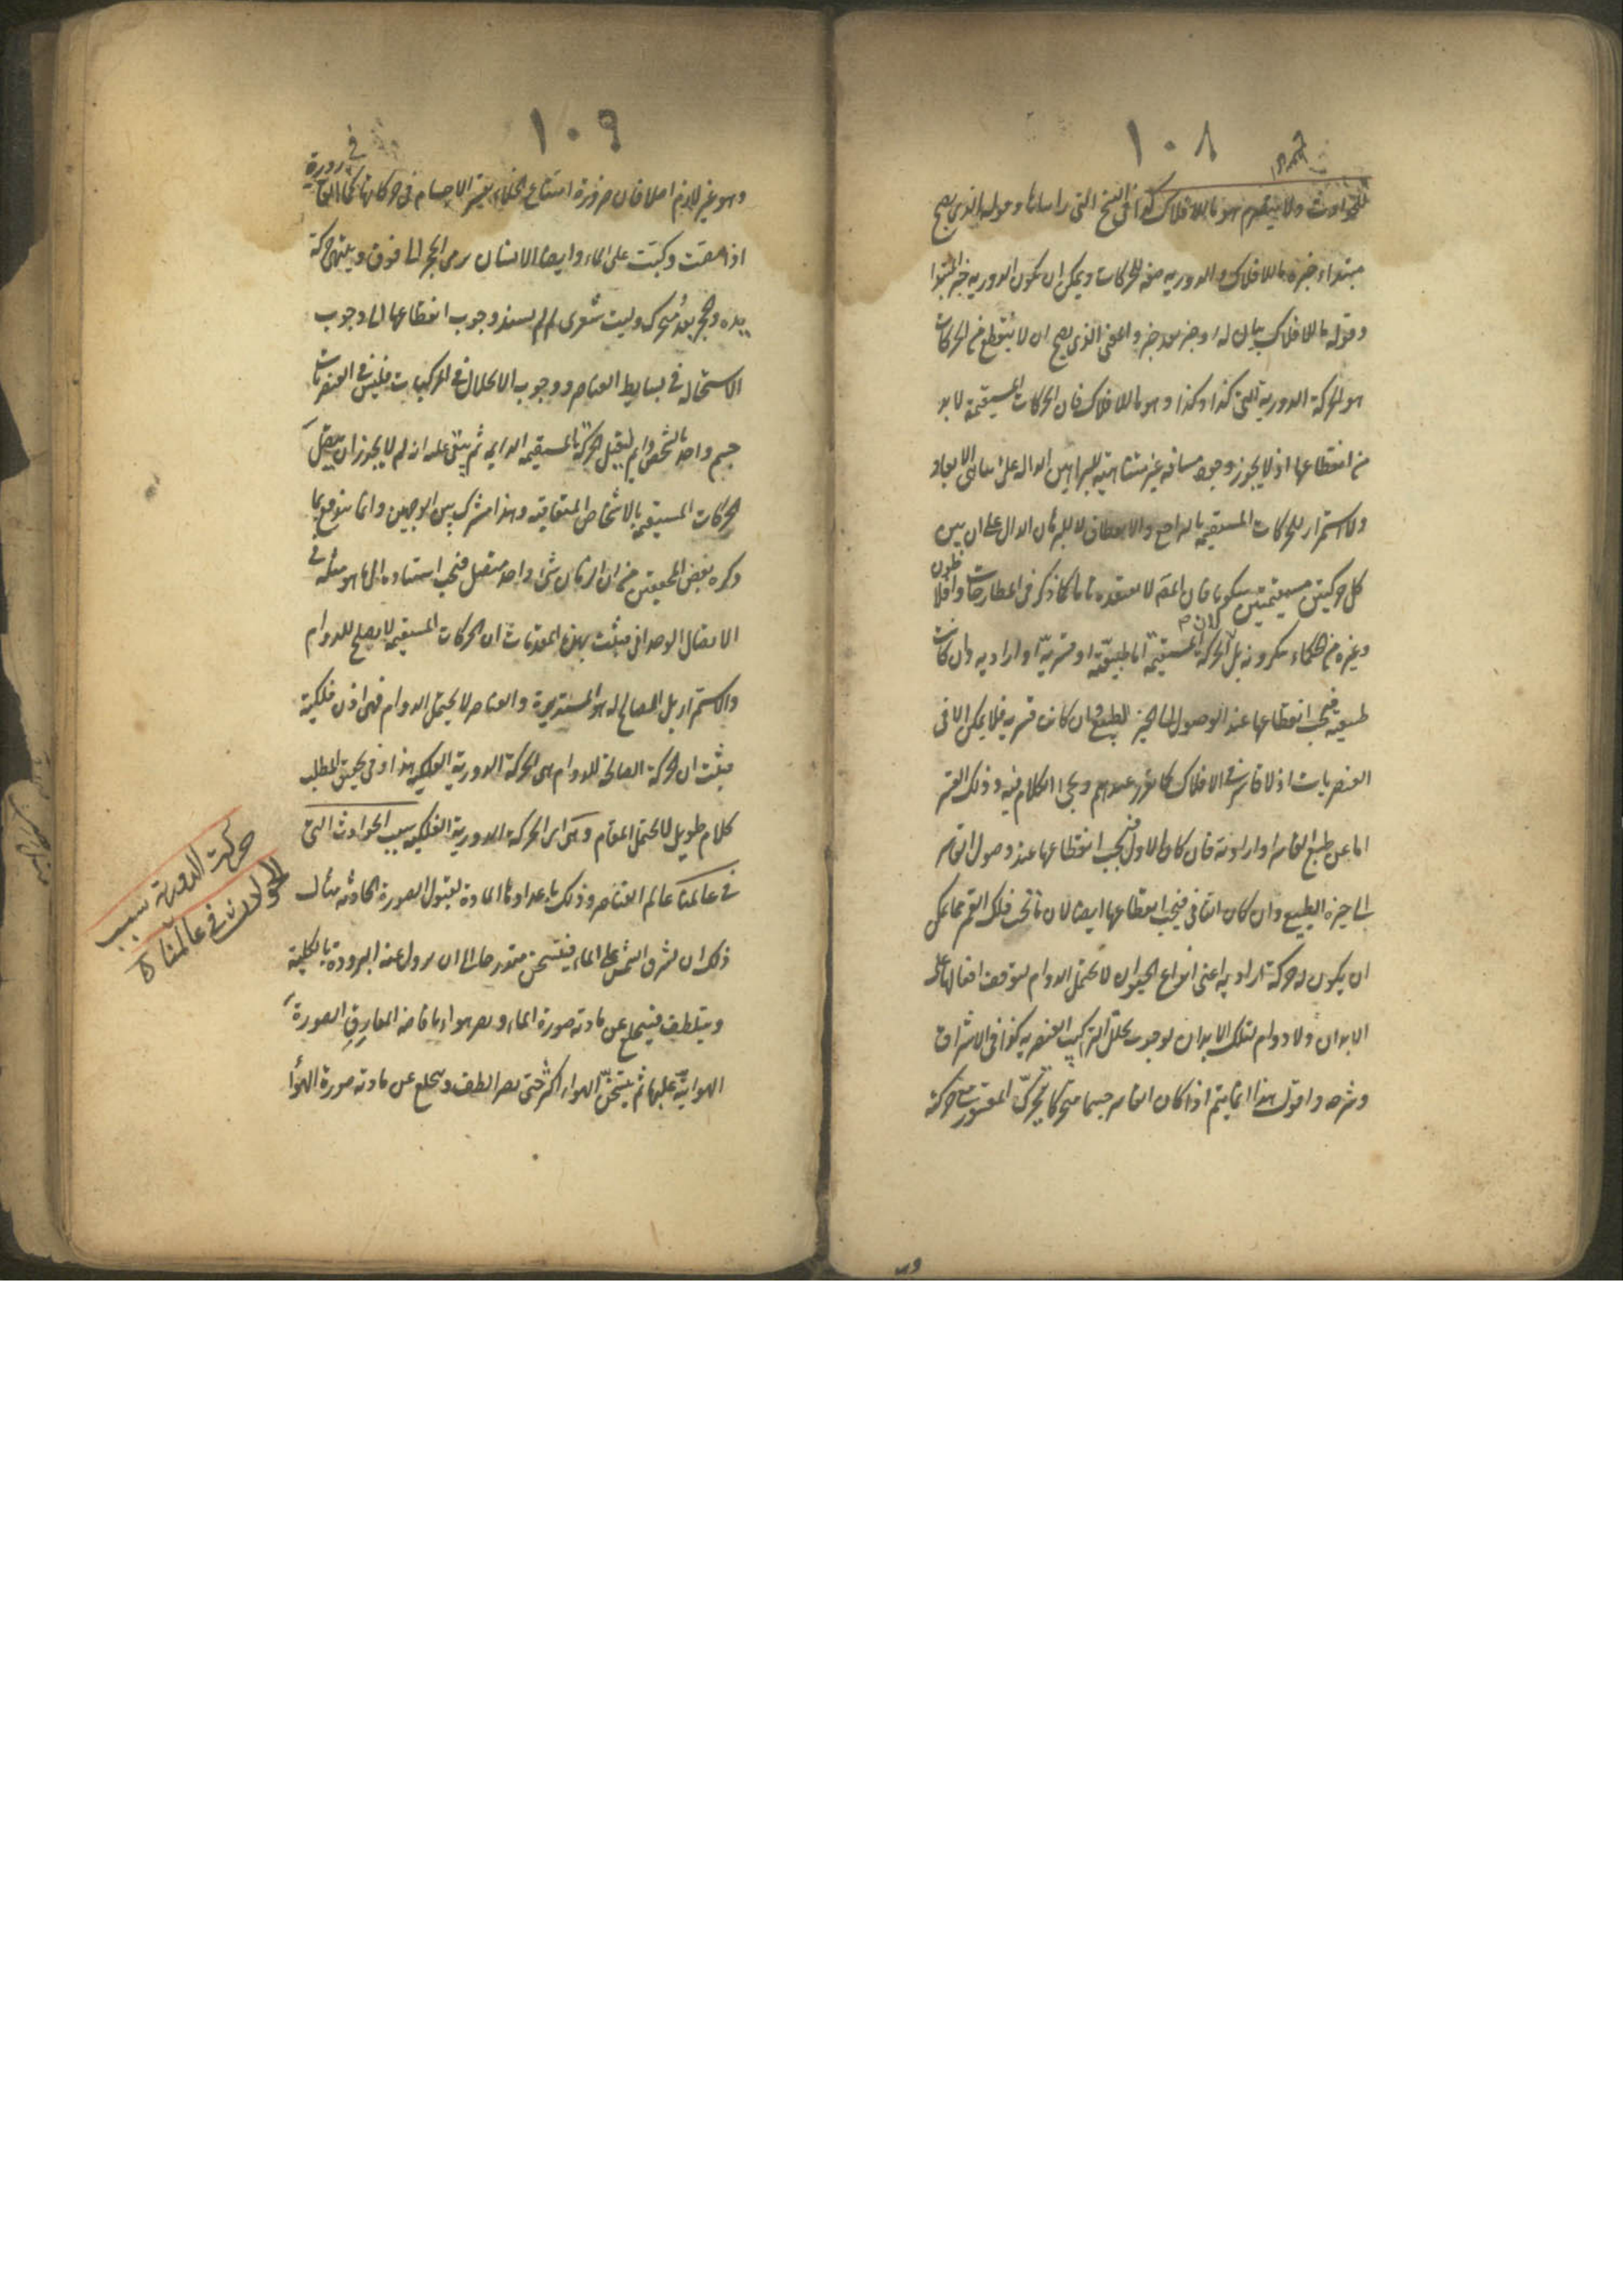 ١٠٨
للحوادث ولا ينصرم هو ما للافلاك كذا فى النسخ التى رايناها وقوله الذى يصح
مبتداء خبره ما للافلاك والدورية صفة للحركات ويمكن ان يكون الدورية خبر المبتدا
وقوله ما للافلاك بيان له او خبر بعد خبر والمعنى الذى يصح ان لا ينقطع من الحركات
هو الحركة الدورية التى كذا وكذا وهو ما للافلاك فان الحركات المستقيمة لا بد
من انقطاعها اذ لا يجوز وجود مسافة غير متناهية للبراهين الدالة على تناهى الابعاد
ولا استمرار للحركات المستقيمة بالتراجع والانعطاف لا للبرهان الدال على ان بين
كل حركتين مستقيمتين سكونا فان المص لا يعتقده تاما كما ذكر فى المطارحات وافلاطون
وغيره من الحكماء ينكرونه بل لان الحركة المستقيمة اما طبيعية او قسرية او ارادية فان كانت
طبيعية فيجب انقطاعها عند الوصول الى الحيز الطبيعى وان كانت قسرية فلا يمكن الا فى
العنصريات اذ لا قاسر فى الافلاك كما تقرر عندهم ويجئ الكلام فيه وذلك القسر
اما عن طبع القاسر او ارادته فان كان الاول فيجب انقطاعها عند وصول القاسر
الى حيزه الطبيعى وان كان الثانى فيجب انقطاعها ايضا لان ما تحت فلك القمر مما يمكن
ان يكون له حركة ارادية اعنى انواع الحيوان لا يحتمل الدوام لتوقف افعالها على
الابدان ولا دوام لتلك الابدان لوجوب تحلل التراكيب العنصرية كذا فى الاشراق
وشرحه واقول هذا انما يتم اذا كان القاسر جسما متحركا يحرك المقسور مع حركته
١٠٩
وهو غير لازم اصلا فان ضرورة امتناع الخلاء يقسر الاجسام فى حركاتها كما فى القارورة
اذا مصت وكبت على الماء وايضا الانسان يرمى الحجر الى فوق وينتهى حركة
يده والحجر بعد متحرك وليت شعرى لم لم يسند وجوب انقطاعها الى وجوب
الاستحالة فى بسايط العناصر ووجوب الانحلال فى المركبات فليس فى العنصريات
جسم واحد بالشخص دايم ليقبل الحركة المستقيمة الدايمة ثم يبقى عليه انه لم لا يجوز ان يتصل
الحركات المستقيمة بالاشخاص المتعاقبة وهذا مشترك بين الوجهين وانما يندفع بما
ذكره بعض المحققين من ان الزمان شئ واحد متصل فيجب استناده الى ما هو مثله فى
الاتصال الوحدانى فيثبت بهذه المقدمات ان الحركات المستقيمة لا يصلح للدوام
والاستمرار بل الصالح له هو المستديرة والعناصر لا يحتمل الدوام فهى اذن فلكية
فيثبت ان الحركة الصالحة للدوام هى الحركة الدورية الفلكية هذا وفى تحقيق المطلب
كلام طويل لا يحتمل المقام وهى اى الحركة الدورية الفلكية سبب الحوادث التى
فى عالمنا عالم العناصر وذلك باعدادها المادة لقبول الصورة الحادثة مثال
ذلك ان تشرق الشمس على الماء فيتسخن متدرجا الى ان يزول عنه البرودة بالكلية
ويتلطف فينخلع عن مادته صورة الماء ويصير هواء بافاضة المفارق الصورة
الهوائية عليها ثم يتسخن الهواء اكثر حتى يصير الطف وينخلع عن مادته صورة الهواء
حركت الدورية سبب
الحوادث فى عالمنا